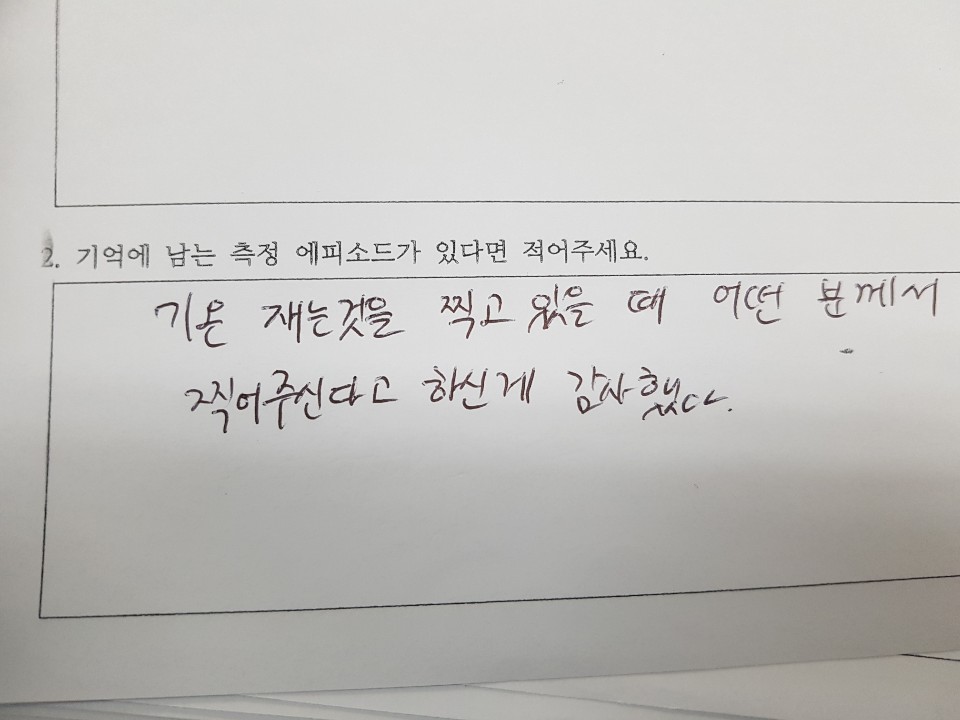 2. 기억에 남는 측정 에피소드가 있다면 적어주세요.
기온 재는것을 찍고 있을 때 어떤 분께서
찍어주신다고 하신게 감사했다.